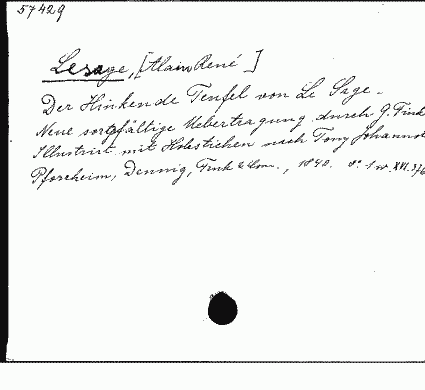 57429
Lesage, [Alain René ]
Der Hinkende Teufel von Le Sage.
Neue sorgfältige Uebertragung durch G. Fink
Illustrirt mit Holzstichen nach Tony Johannot
Pforzheim, Dennig, Fink & Com., 1840. 8°. XVI. 376